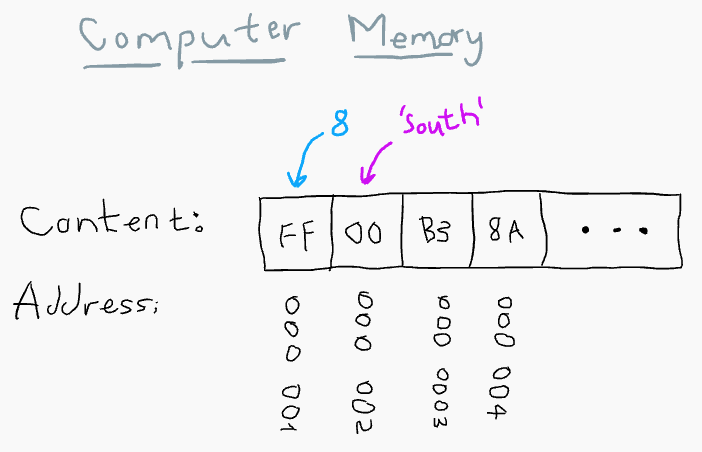 Computer Memory
8 'south'
Content: FF 00 B3 8A ...
Address: 000 001 000 002 000 0003 000 004